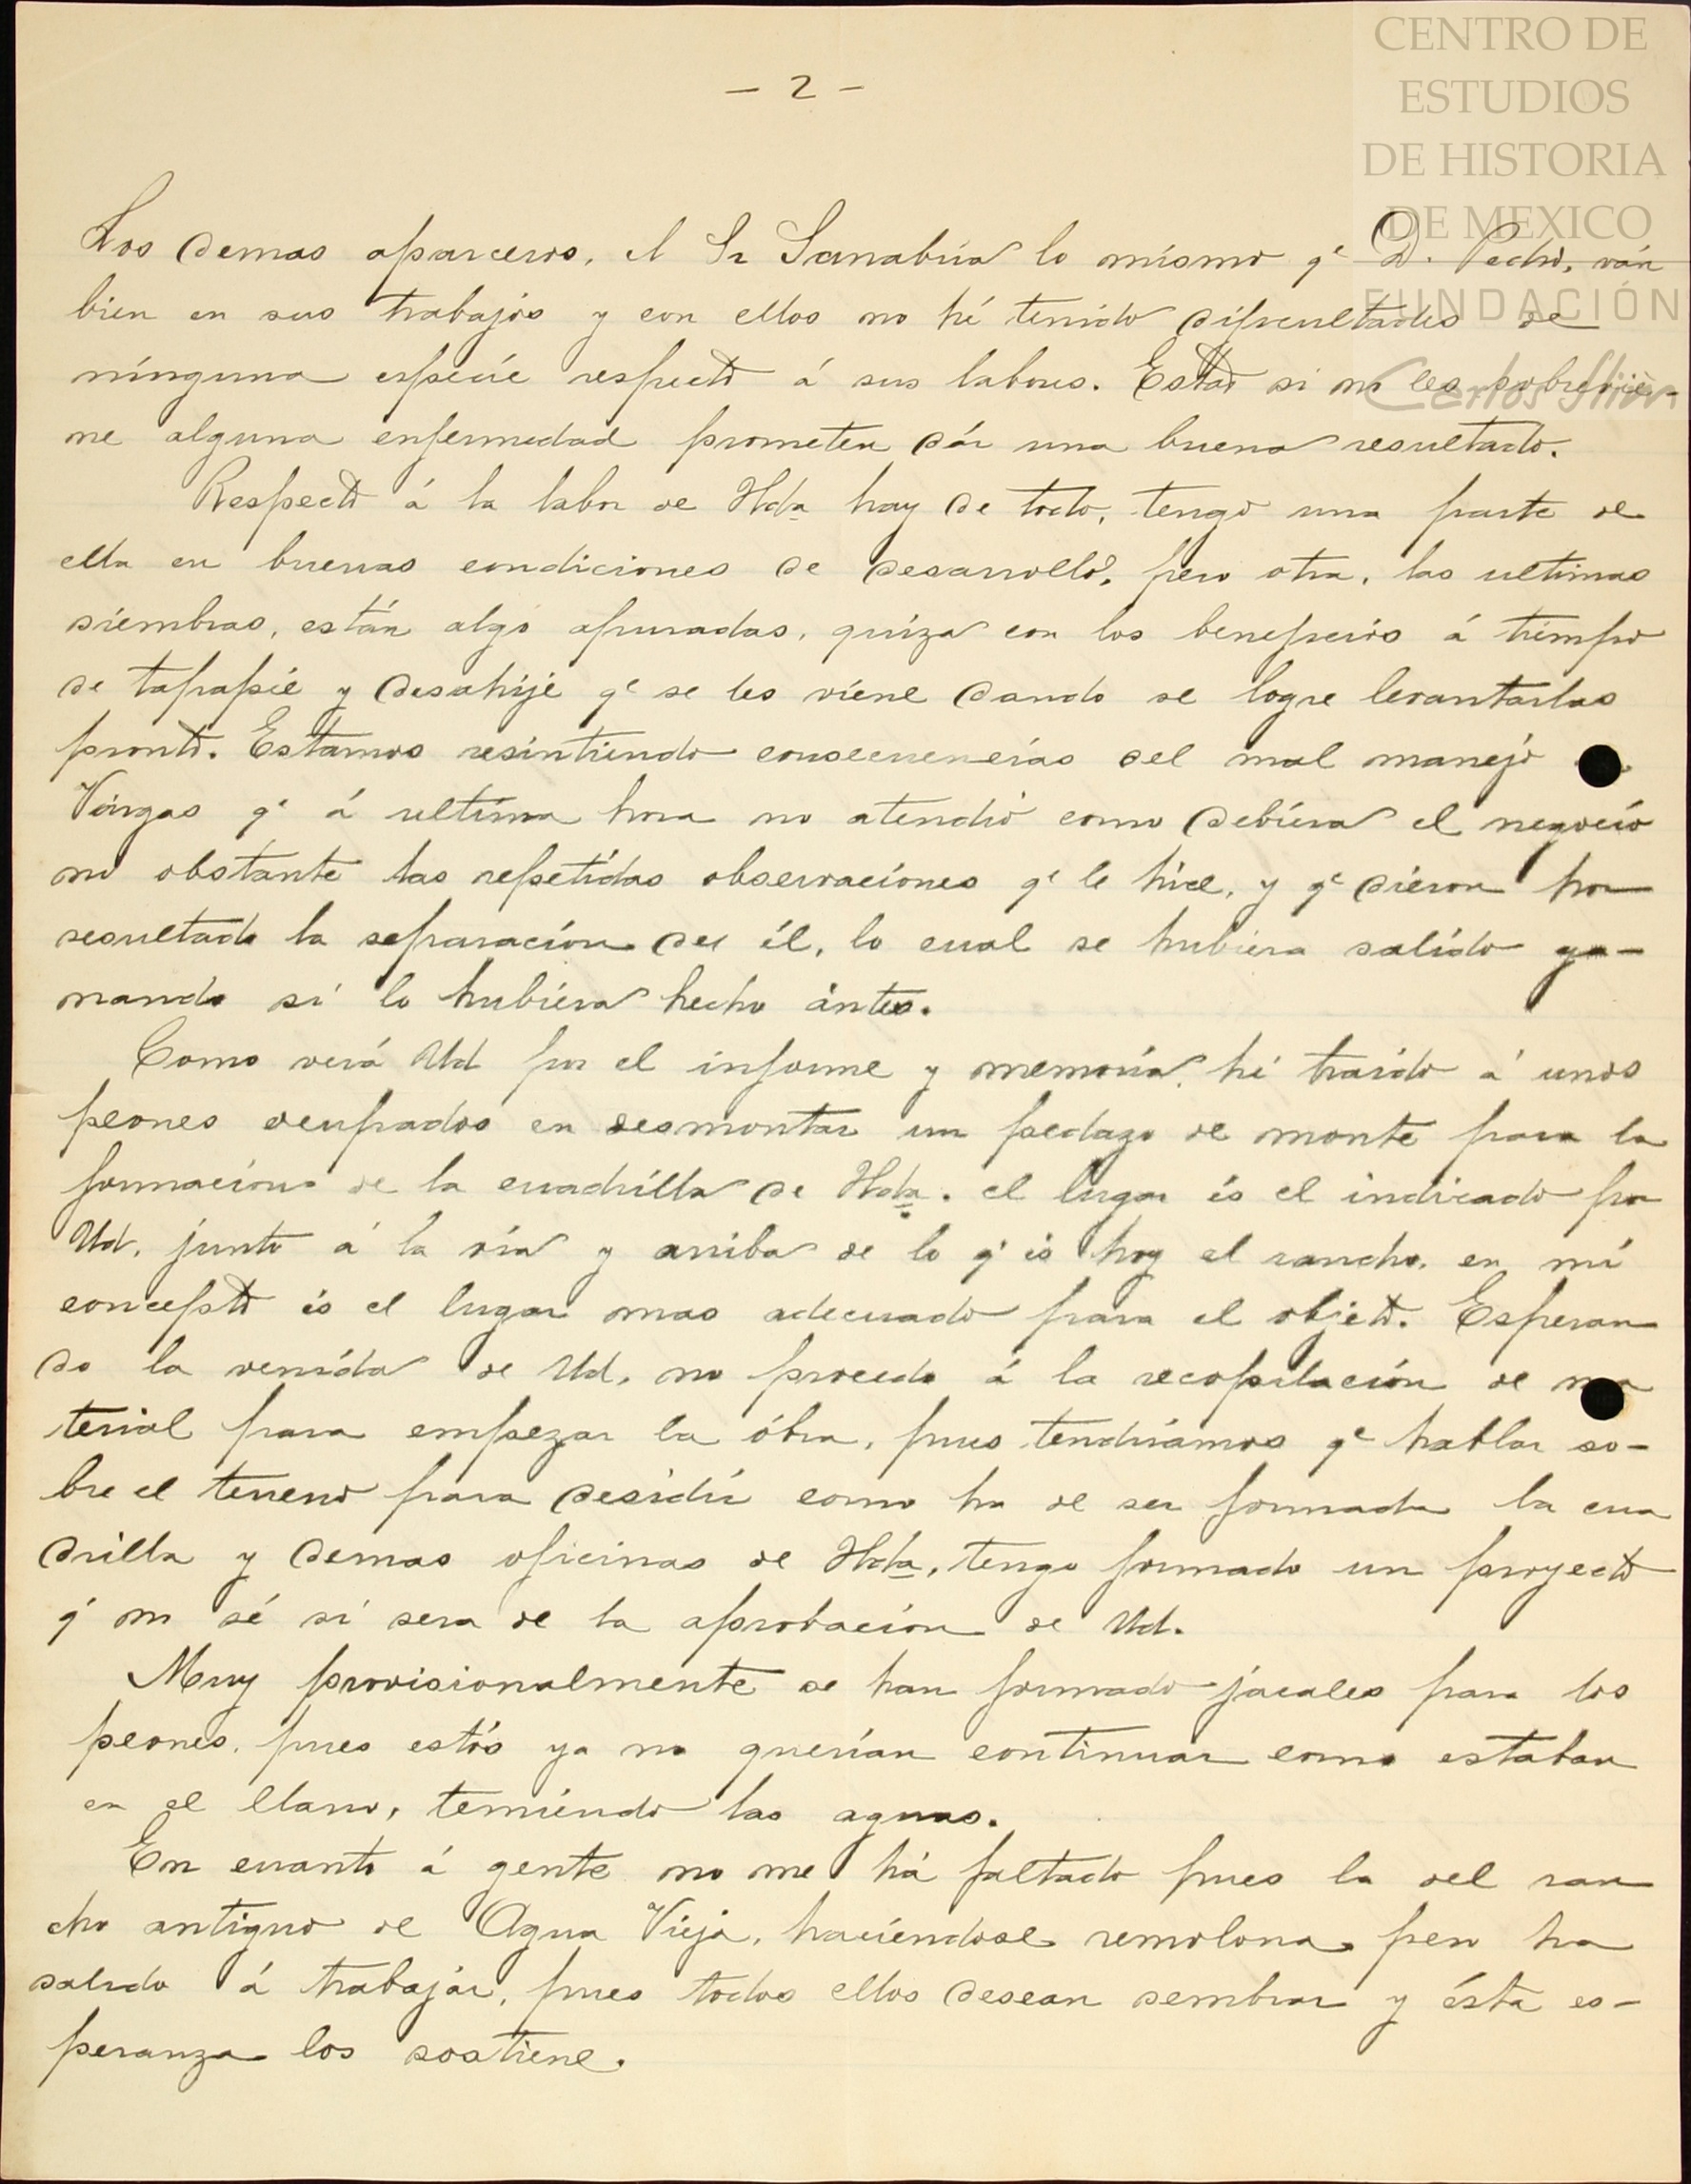 CENTRO DE
ESTUDIOS
DE HISTORIA
DE MEXICO
FUNDACIÓN
Carlos Slim
- 2 -
Los demas aparceros, el Sr Sanabria lo mismo qe D. Pedro, ván
bien en sus trabajos y con ellos no hé tenido dificultades de
ninguna especie respecto á sus labores. Estas si no les sobrevie-
ne alguna enfermedad prometen dár una buena resultado.
Respecto á la labor de Hda hay de todo, tengo una parte de
ella en buenas condiciones de desarrollo, pero otra, las ultimas
siembras, están algo apuradas, quiza con los beneficios á tiempo
de tapapié y desahije qe se les viene dando se logre levantarlas
pronto. Estamos resintiendo consecuencias del mal manejo
Vargas qe á ultima hora no atendió como debiera el negocio
no obstante las repetidas observaciones qe le hice, y qe dieron por
resultado la separación de él, lo cual se hubiera salido ga-
nando si lo hubiera hecho ántes.
Como verá Ud por el informe y memoria, hé traido á unos
peones ocupados en desmontar un pedazo de monte para la
formación de la cuadrilla de Hda. el lugar és el indicado por
Ud. junto á la vía y arriba de lo q' és hoy el rancho, en mi
concepto és el lugar mas adecuado para el objeto. Esperan
do la venida de Ud, no procedo á la recopilación de ma
terial para empezar la óbra, pues tendriamos qe hablar so-
bre el terreno para desidir como ha de ser formada la cua
drilla y demas oficinas de Hda, tengo formado un proyecto
q' no sé si sera de la aprobación de Ud.
Muy provisionalmente se han formado jacales para los
peones, pues estós ya no querian continuar como estaban
en el llano, temiendo las aguas.
En cuanto á gente no me há faltado pues la del ran
cho antiguo de Agua Vieja, haciendose remolona pero ha
salido á trabajar, pues todos ellos desean sembrar y ésta es-
peranza los sostiene.